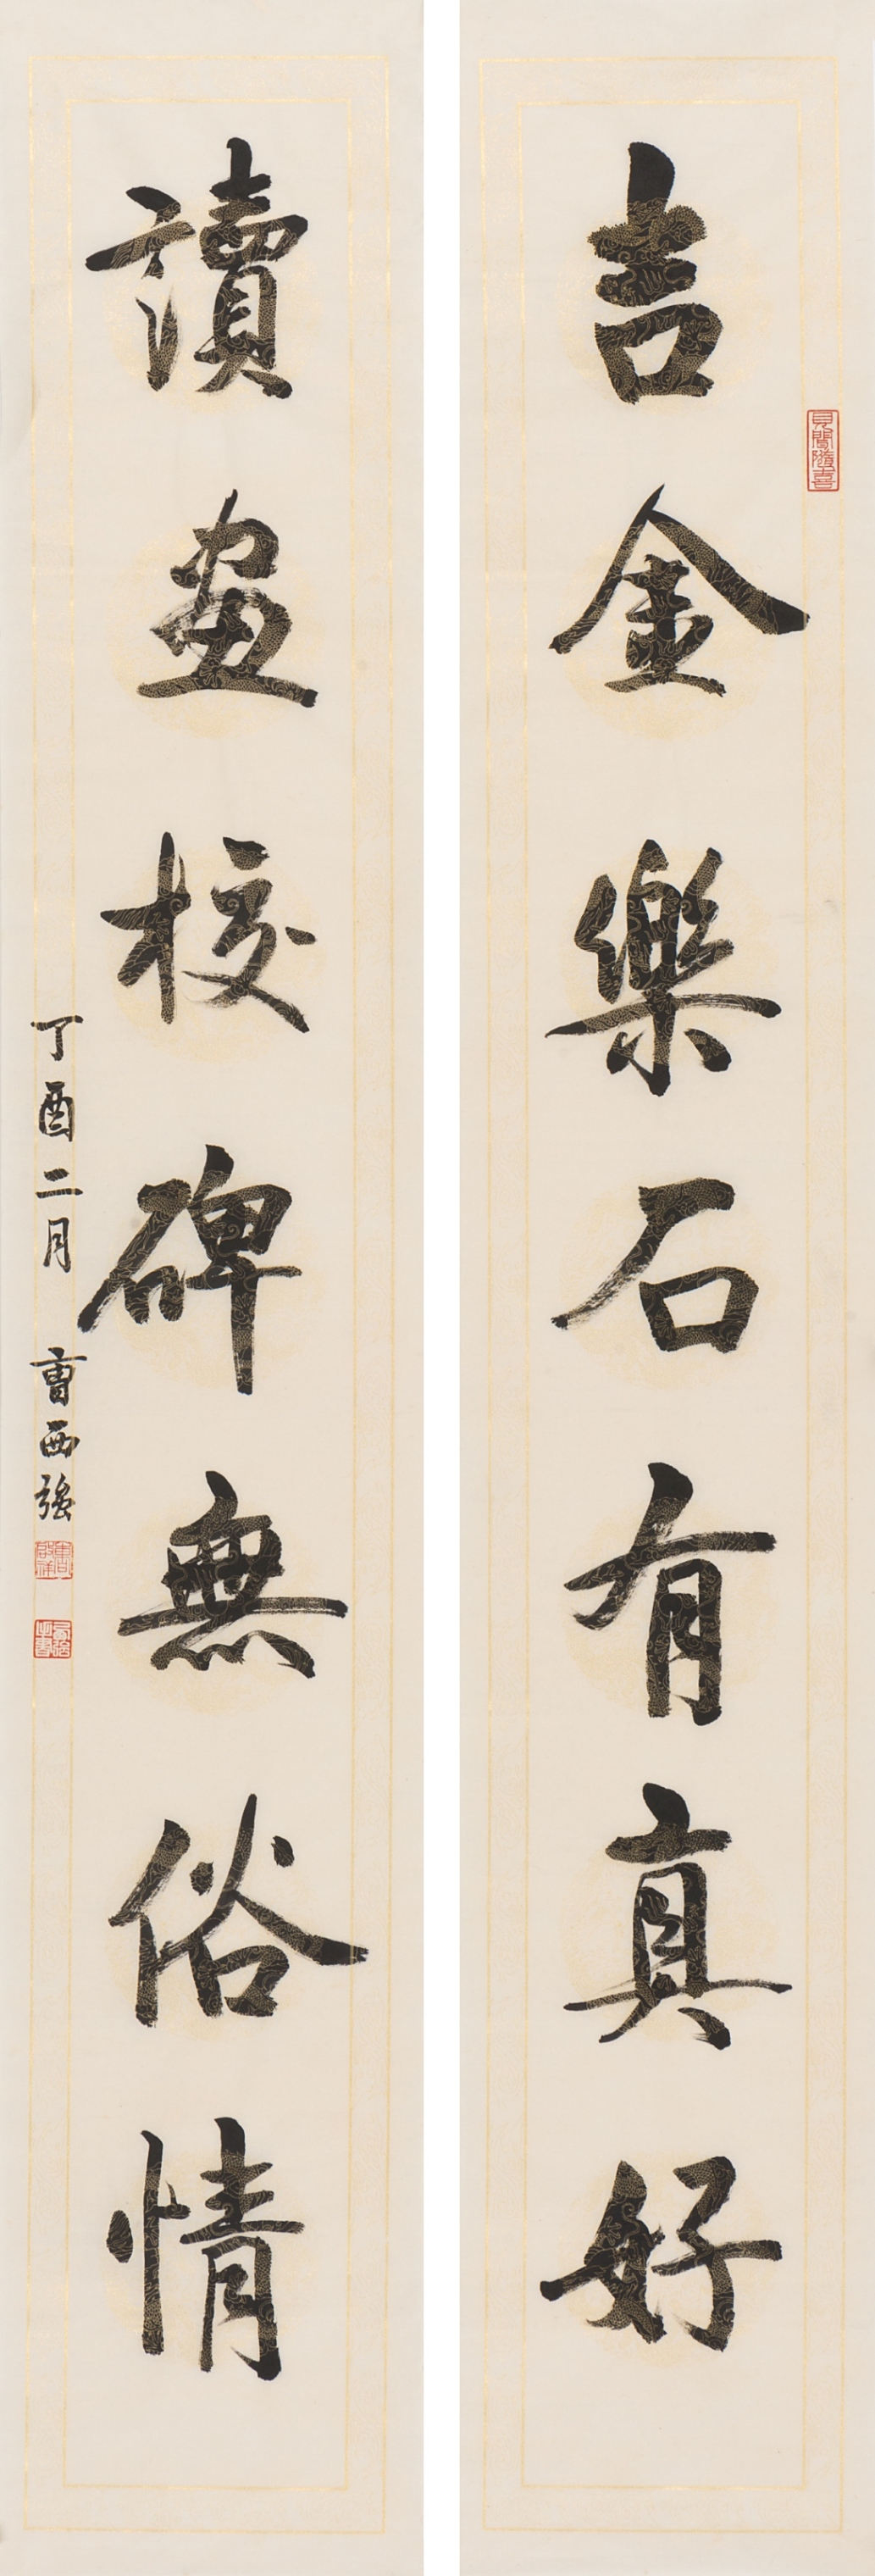 吉金樂石有真好
讀畫校碑無俗情
丁酉二月 曹西強
見聞隨喜